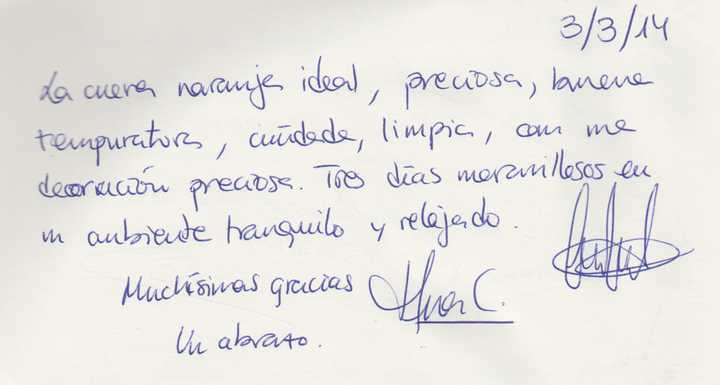 3/3/14
La cueva naranja ideal, preciosa, buena
temperatura, cuidada, limpia, con una
decoración preciosa. Tres días maravillosos en
un ambiente tranquilo y relajado.
Muchísimas gracias
Un abrazo.